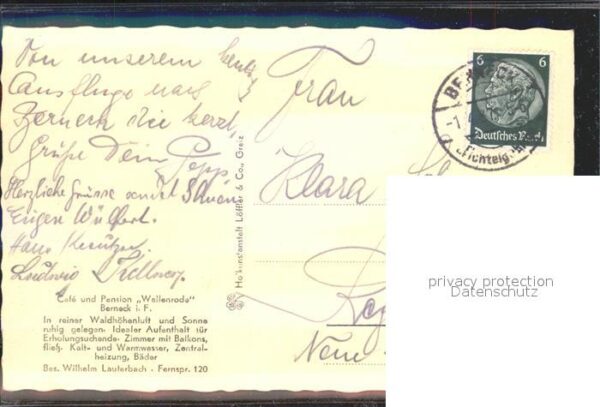 Von unserem heutig
Ausfluge nach
Berneck die herzl.
Grüße Dein Sepp
Herzliche Grüsse sendet
Eugen Wülfert.
Hans Kreutzer
Ludwig
Café und Pension „Wallenrode"
Berneck i. F.
In reiner Waldhöhenluft und Sonne
ruhig gelegen. Idealer Aufenthalt für
Erholungsuchende. Zimmer mit Balkons,
fließ. Kalt- und Warmwasser, Zentral-
heizung, Bäder
Bes. Wilhelm Lauterbach - Fernspr. 120
Hofkunstanstalt Löffler & Co., Greiz
Frau
Klara
Reg
Neue
6 6
Deutsches Reich
BERNECK
-1.
(Fichtelg
privacy protection
Datenschutz